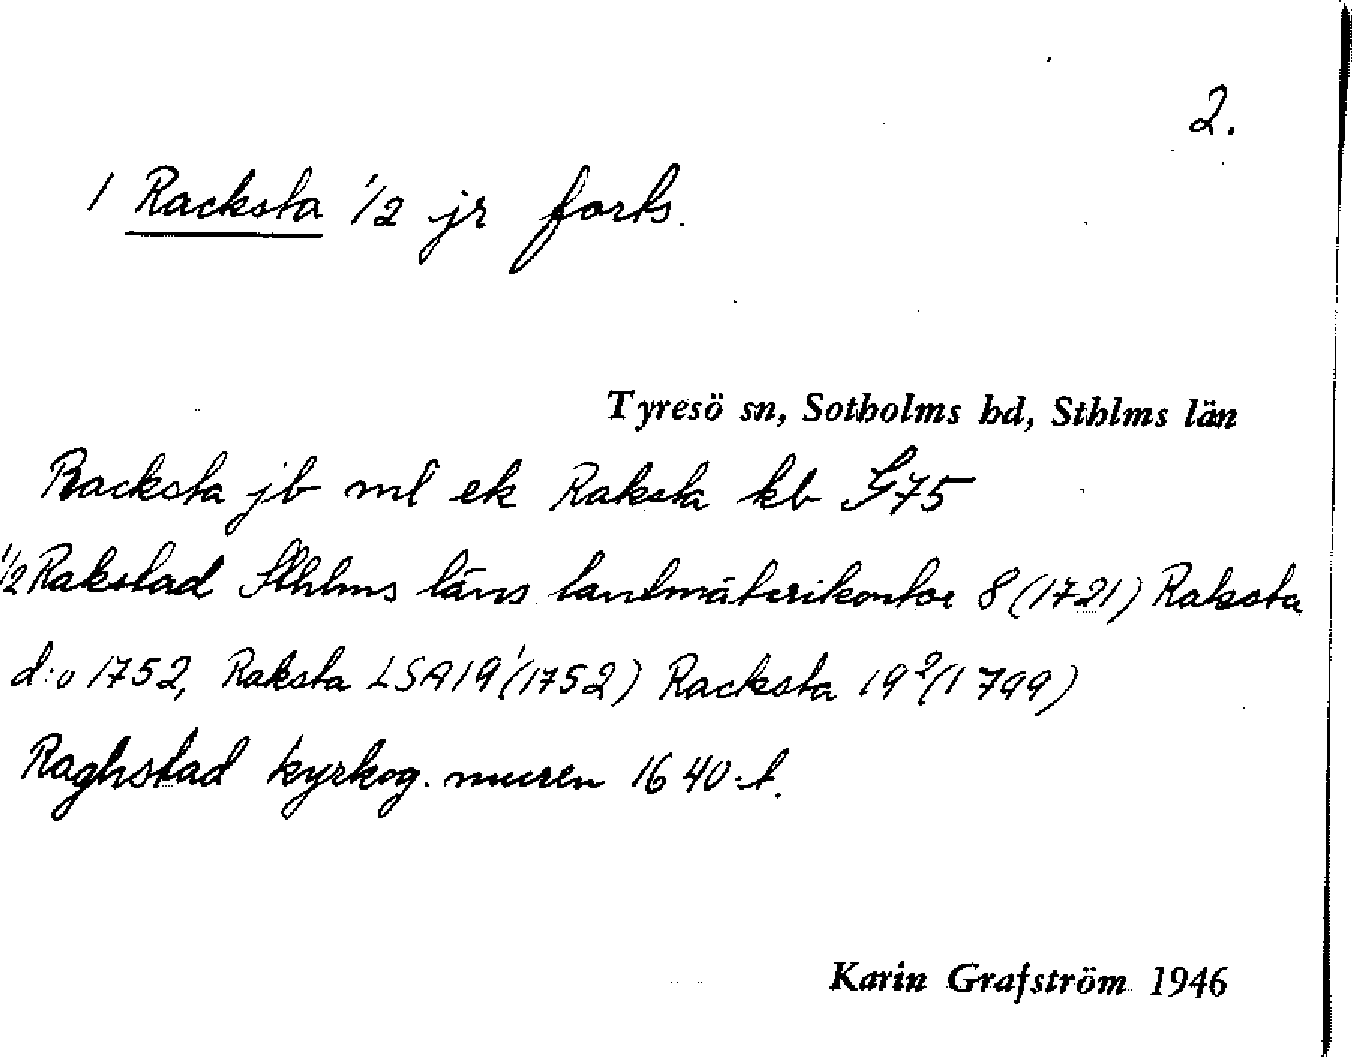 2.
1 Racksta 1/2 jr forts.
Tyresö sn, Sotholms hd, Sthlms län
Racksta jb ml ek Raksta kb G75
1/2 Rakstad Sthlms läns lantmäterikontor 8 (1721) Raksta
d:o 1752, Raksta LSA19¹(1752) Racksta 19²(1799)
Raghstad kyrkog. muren 1640-t.
Karin Grafström 1946